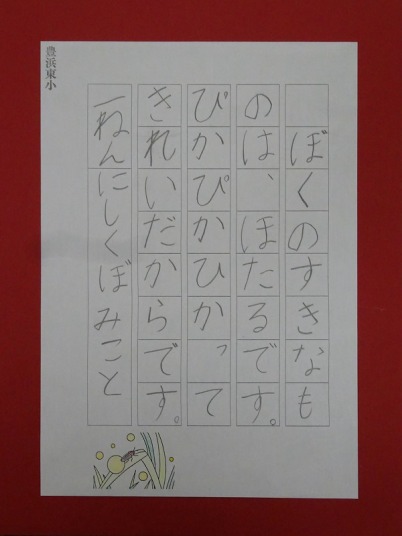 豊浜東小
ぼくのすきなも
のは、ほたるです。
ぴかぴかひかって
きれいだからです。
一ねんにしくぼみこと